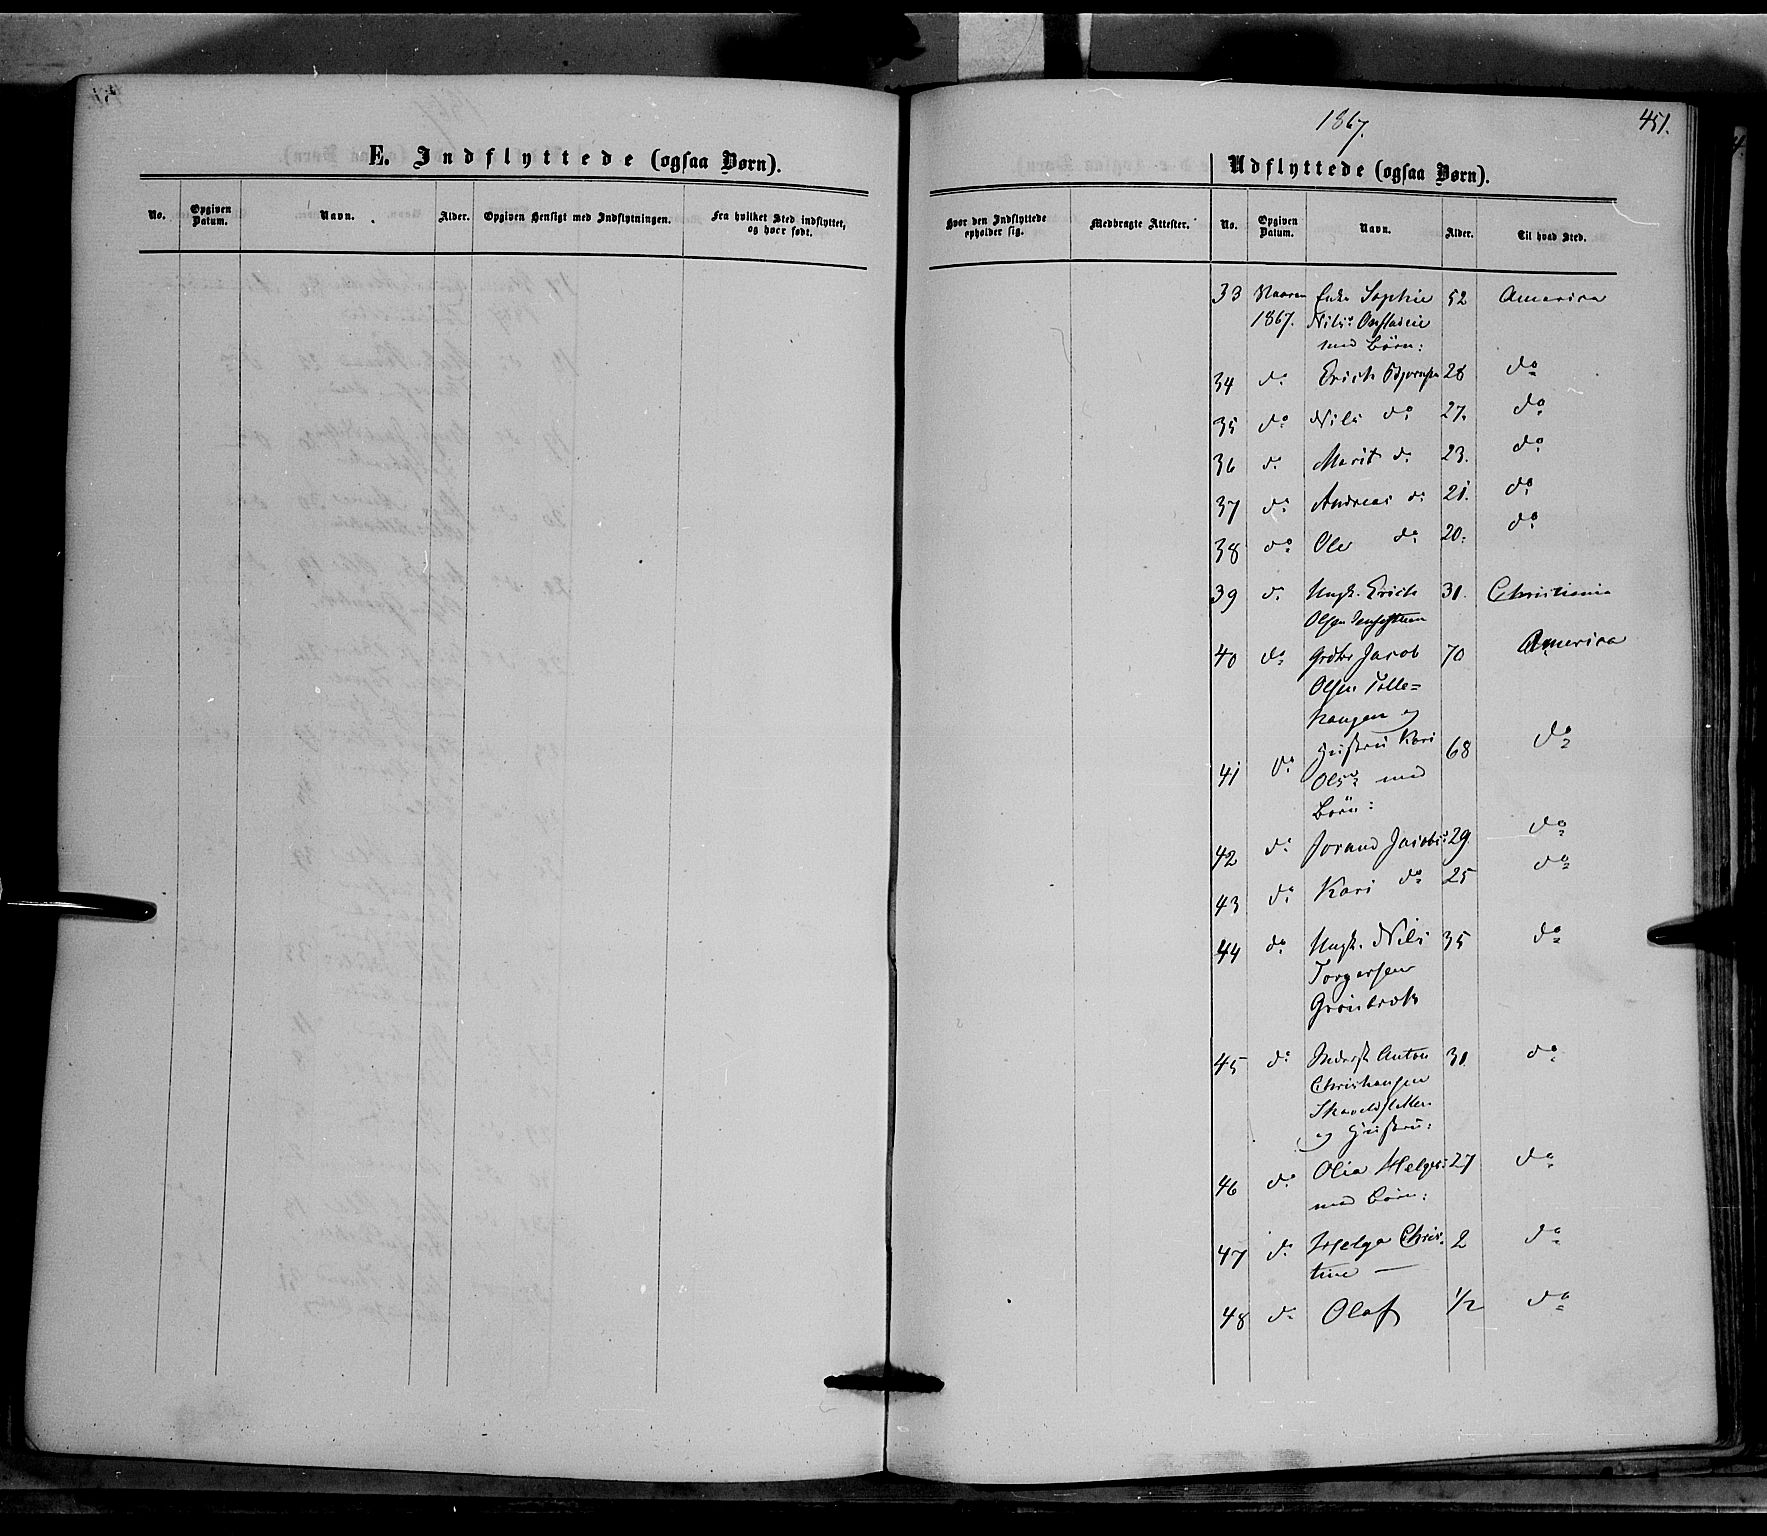 1867.
451.
E. Indflyttede (ogsaa Børn).
Udflyttede (ogsaa Børn).
No. Opgiven Datum. Navn. Alder. Opgiven Hensigt med Indflytningen. Fra hvilket Sted indflyttet, og hvor født.
Hvor den Indflyttede opholder sig. Medbragte Attester. No. Opgiven Datum. Navn. Alder. Til hvad Sted.
33 Vaaren Enke Sophie 52 America
1867. Nilsd
med Børn:
34 do Erich 28 do
35 do Nils do 27. do
36 do Marit do 23. do
37 do Andreas do 21. do
38 do Ole do 20. do
39 do Ungk. Erich 31. Christiania
Olsen
40 do Jacob 70 America
Olsen Tolle=
haugen og
41 do Hustru Kari 68 do
Olsd med
Børn:
42 do Jorand Jacobsd 29 do
43 do Kari do 25 do
44 do Ungk. Nils 35 do
Torgersen
45 do Anton 31 do
Christiansen
og Hustru:
46 do Olia Helges: 27 do
med Børn:
47 do Helga Chris- 2 do
tine —
48 do Olaf 1/2 do